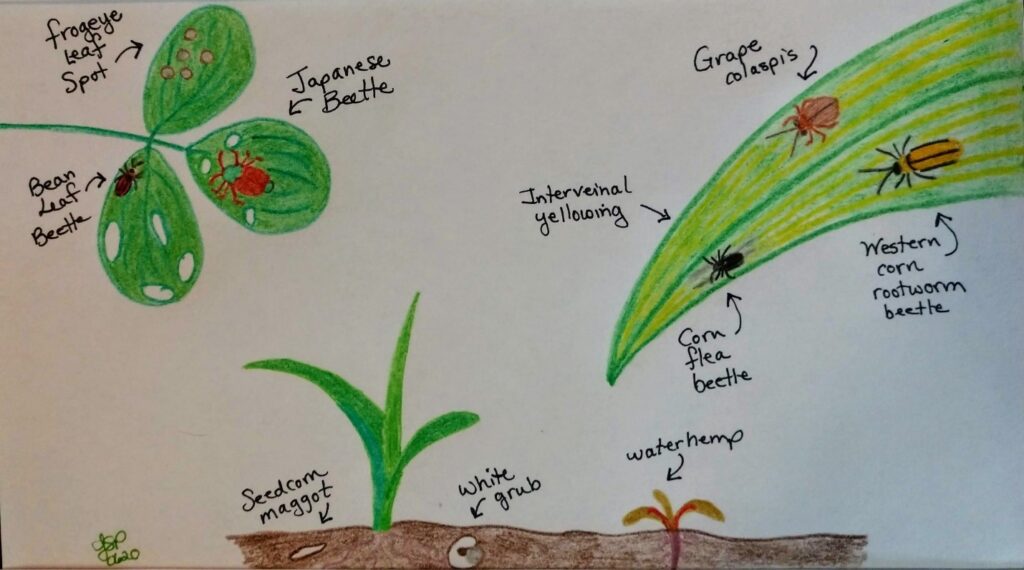 frogeye
Leaf
Spot
Japanese
Beetle
Bean
Leaf
Beetle
Grape
colaspis
Interveinal
yellowing
Western
corn
rootworm
beetle
Corn
flea
beetle
Seedcorn
maggot
White
grub
waterhemp
2020